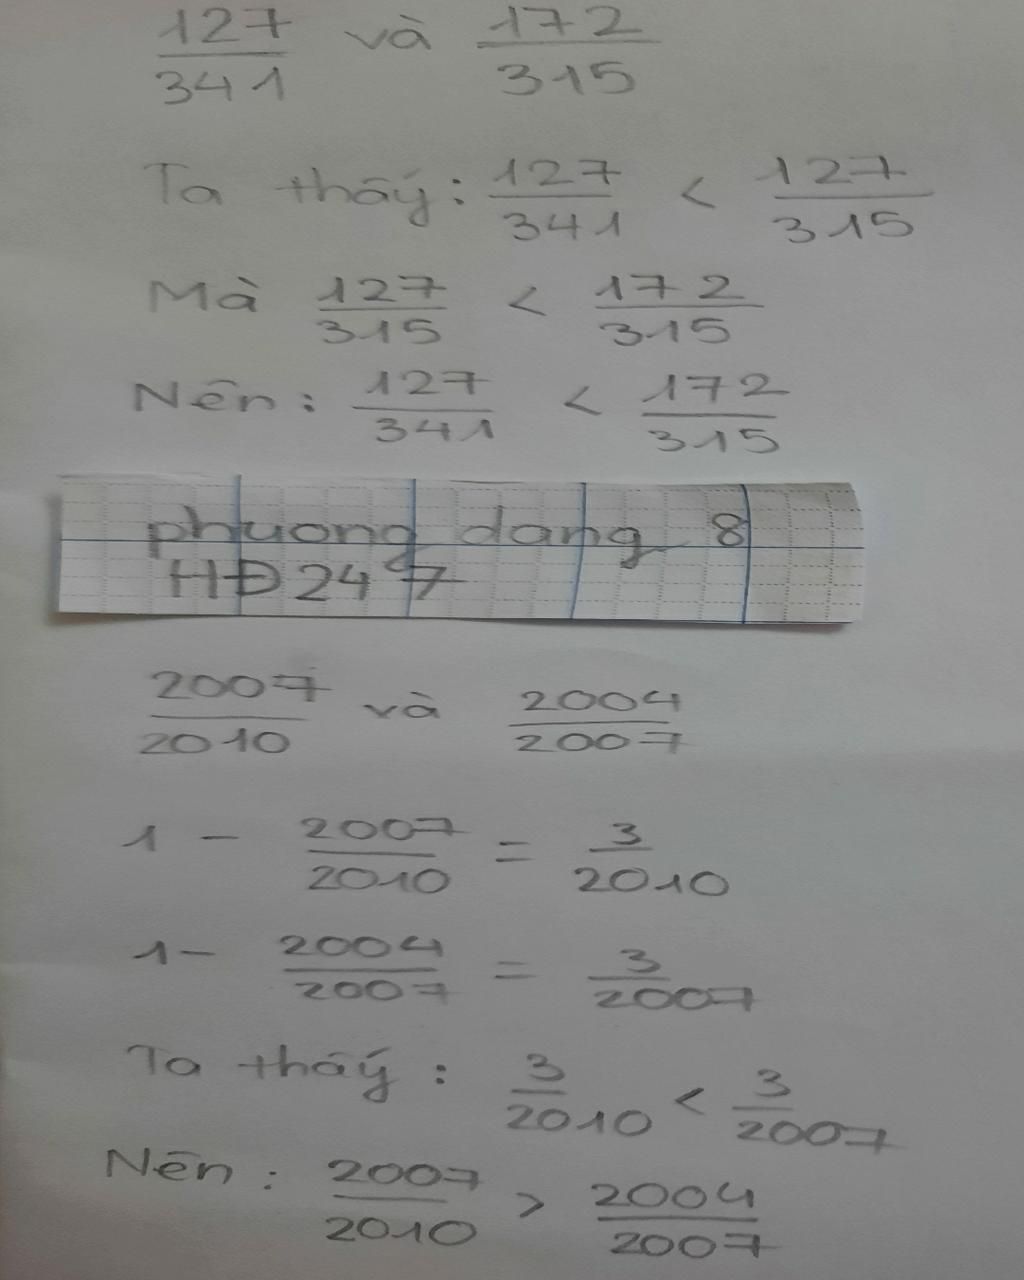 127/341 và 172/315
Ta thấy: 127/341 < 127/315
Mà 127/315 < 172/315
Nên: 127/341 < 172/315
phuong dang 8
HĐ247
2007/2010 và 2004/2007
1 - 2007/2010 = 3/2010
1 - 2004/2007 = 3/2007
Ta thấy: 3/2010 < 3/2007
Nên: 2007/2010 > 2004/2007